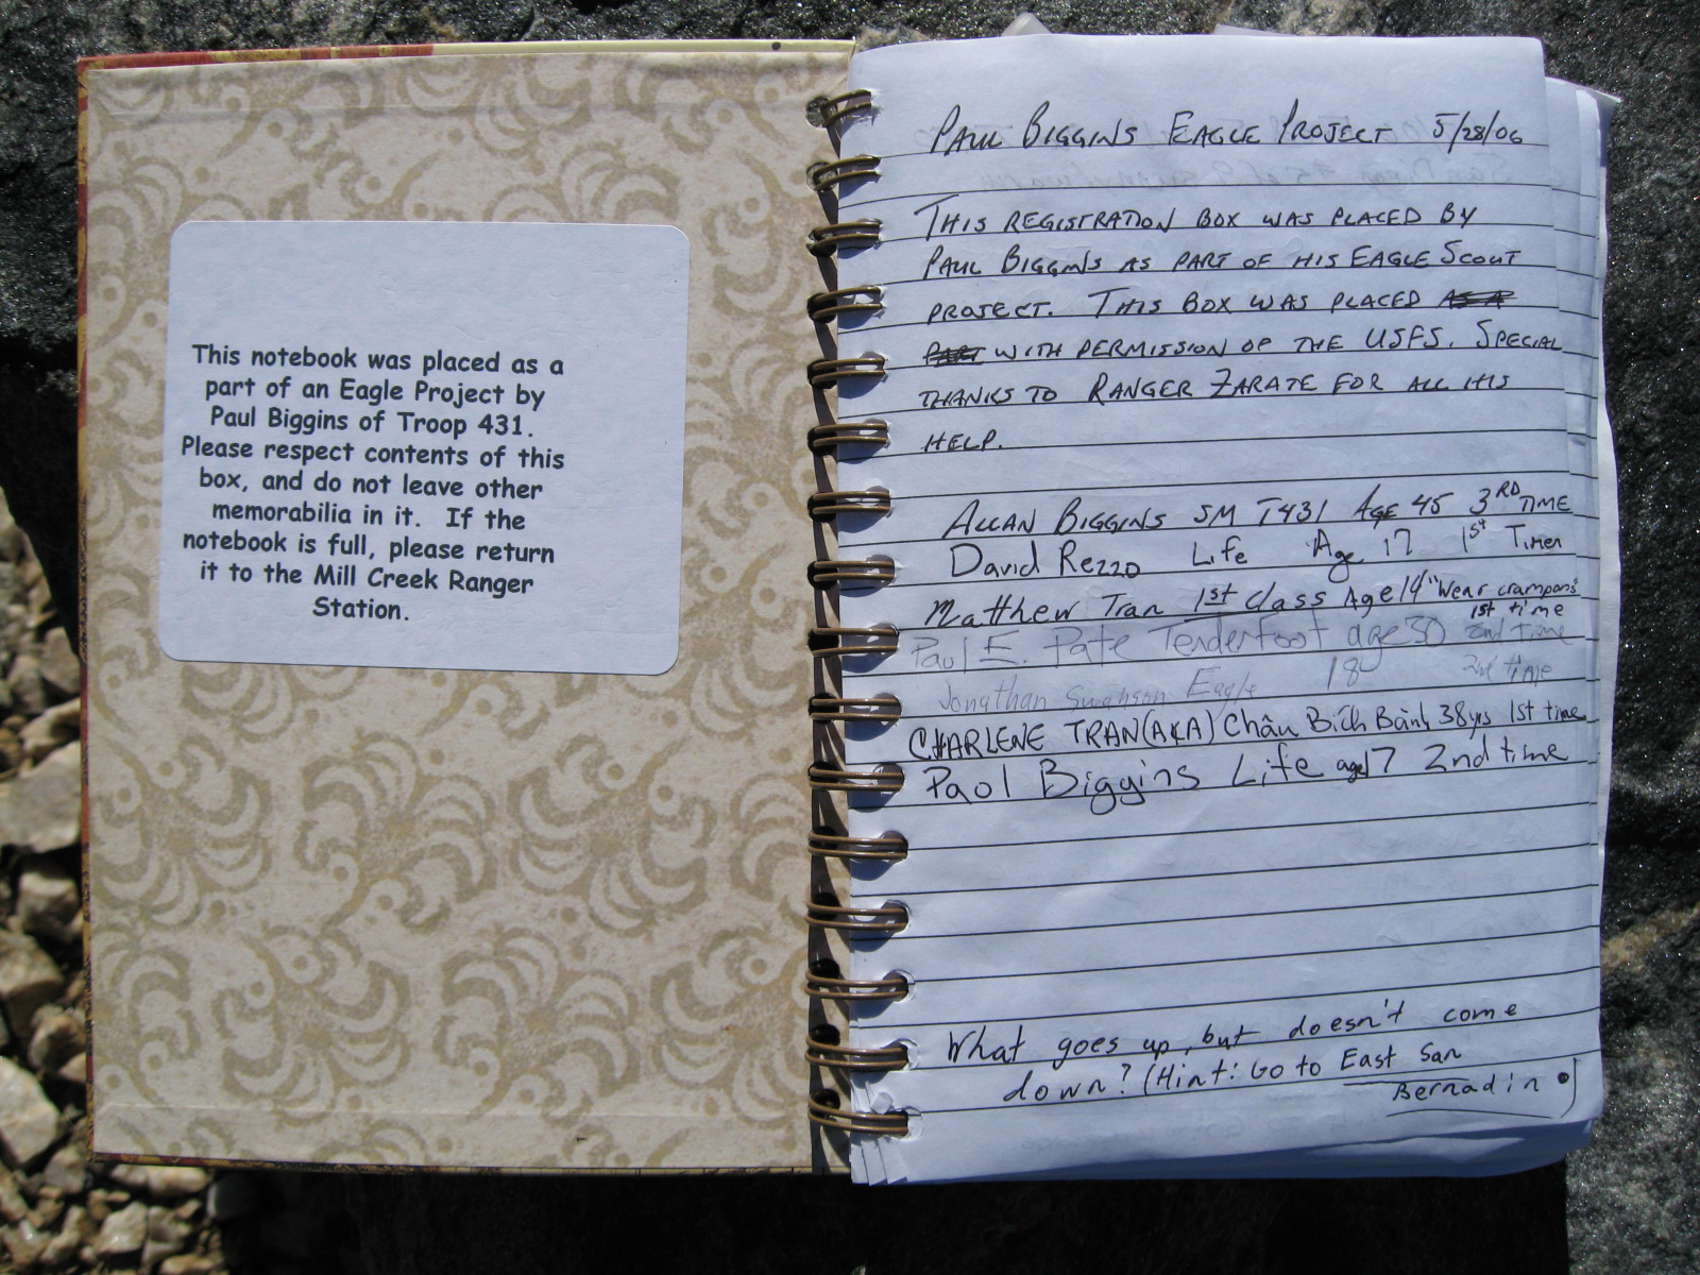 This notebook was placed as a
part of an Eagle Project by
Paul Biggins of Troop 431.
Please respect contents of this
box, and do not leave other
memorabilia in it. If the
notebook is full, please return
it to the Mill Creek Ranger
Station.
PAUL BIGGINS EAGLE PROJECT 5/28/06
THIS REGISTRATION BOX WAS PLACED BY
PAUL BIGGINS AS PART OF HIS EAGLE SCOUT
PROJECT. THIS BOX WAS PLACED AS A
PART WITH PERMISSION OF THE USFS. SPECIAL
THANKS TO RANGER ZARATE FOR ALL HIS
HELP.
ALLAN BIGGINS SM T431 AGE 45 3RD TIME
David Rezzo Life Age 17 1st Timer
Matthew Tran 1st class Age 14 "Wear crampons"
1st time
Paul E. Pate Tenderfoot age 30 2nd time
Jonathan Swanson Eagle 18 2nd time
CHARLENE TRAN (AKA) Châu Bích Bành 38yrs 1st time
Paol Biggins Life age 17 2nd time
What goes up, but doesn't come
down? (Hint: Go to East San
Bernadin.)